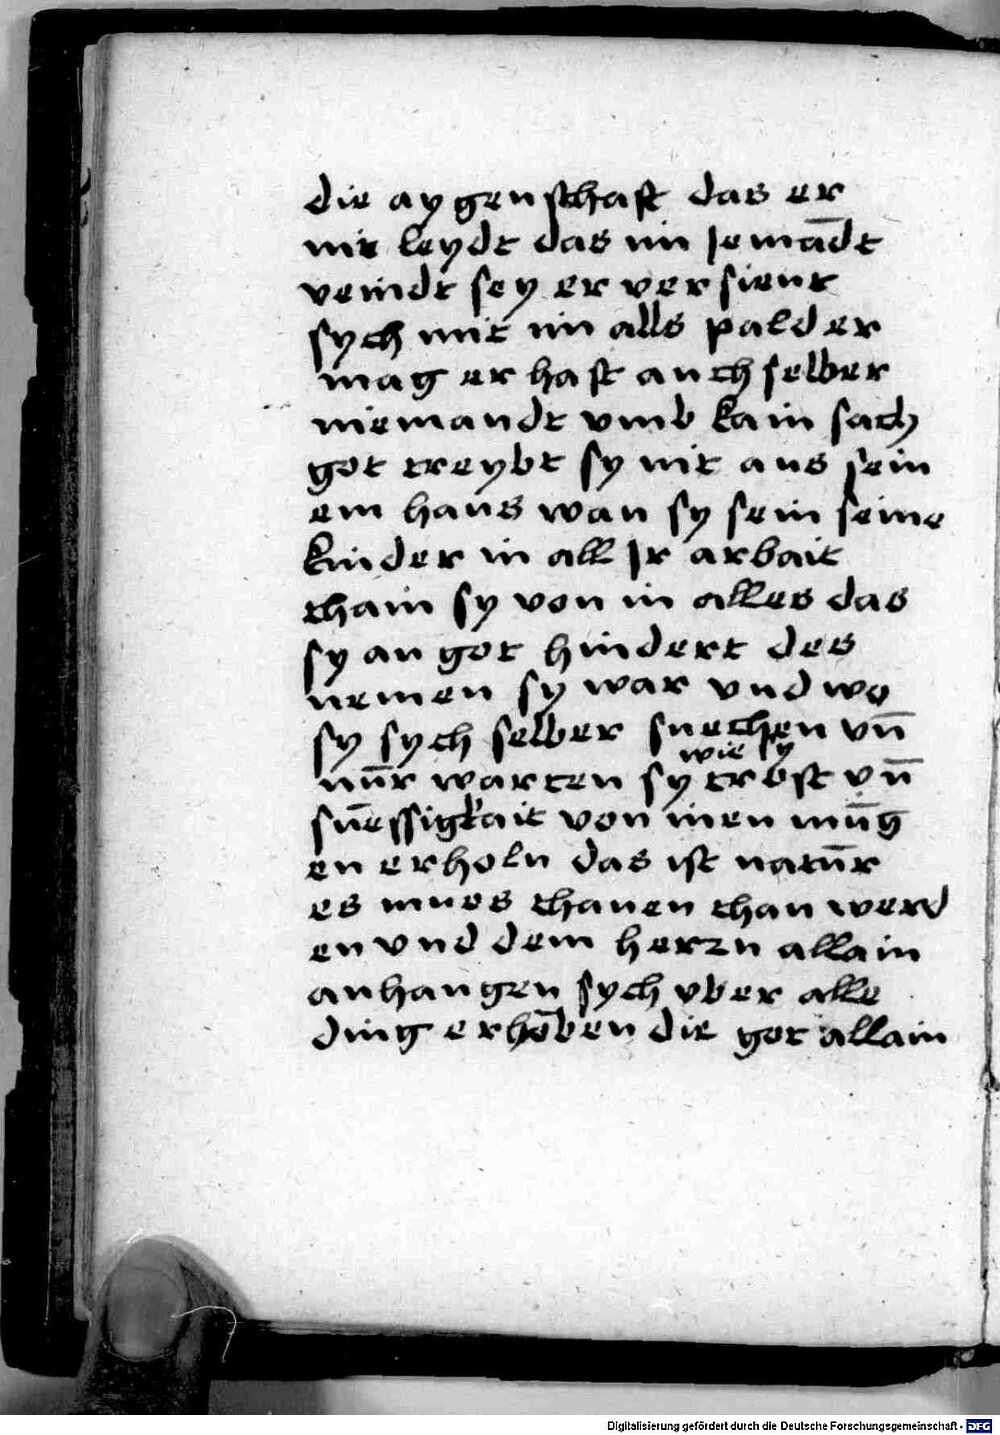 die aygenschaft das er
nit leydt das im Jemād̄t
veindt sey er versient
sych mit im alls pald er
mag er hast auch selber
niemandt vmb kain sach
got treybt sy nit aus sein
em haus wan sy sein seine
kinder in all Jr arbait
chain sy von in alles das
sy an got hindert des
nemen sy war vnd wo
sy sych selber suechen vn̄
wie sy
nūr warten sy trost vn̄
sūessigkait von inen mūg
en erholn das ist natūr
es mues thauen than werd
en vnd dem herzn allain
anhangen sych vber alle
ding erhōben die got allain
Digitalisierung gefördert durch die Deutsche Forschungsgemeinschaft - DFG